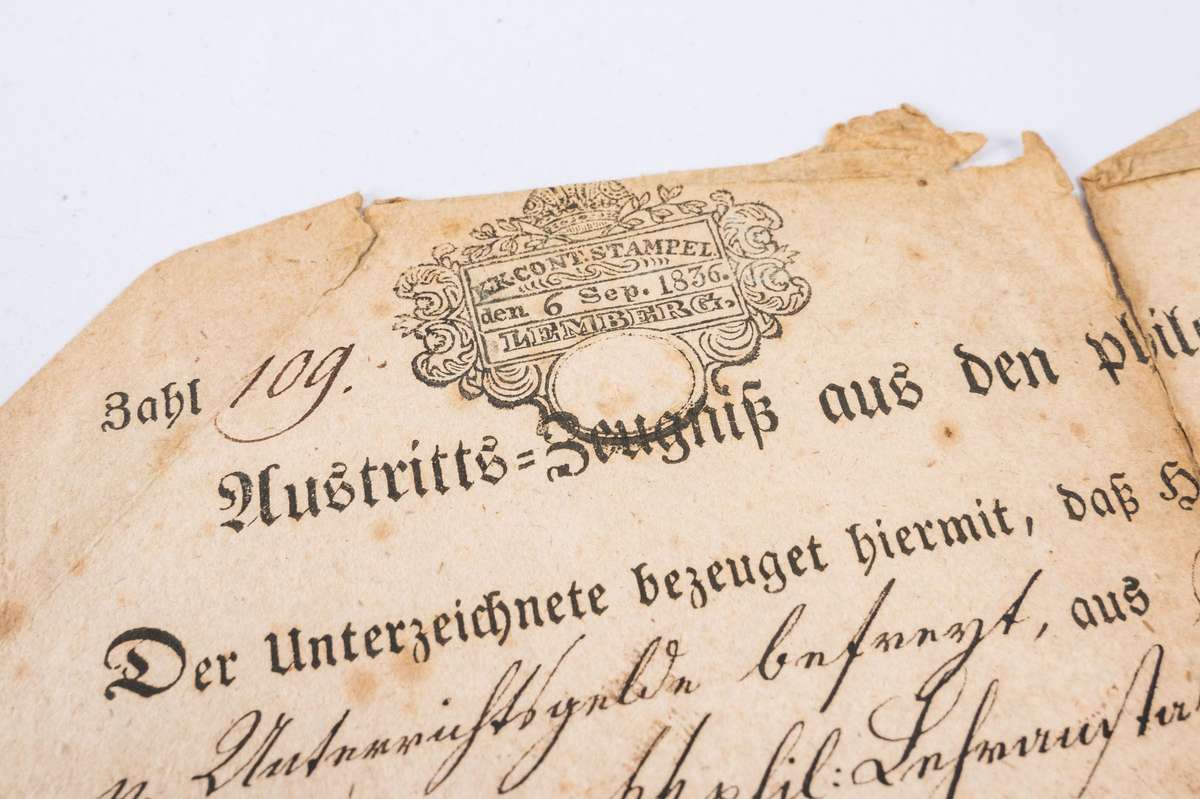 K.K. CONT. STAMPEL
den 6 Sep. 1836.
LEMBERG.
Zahl 109.
Austritts=Zeugniß aus den phil
Der Unterzeichnete bezeuget hiermit, daß H
Unterrichtsgelde befreyt, aus
phil: Lehransta